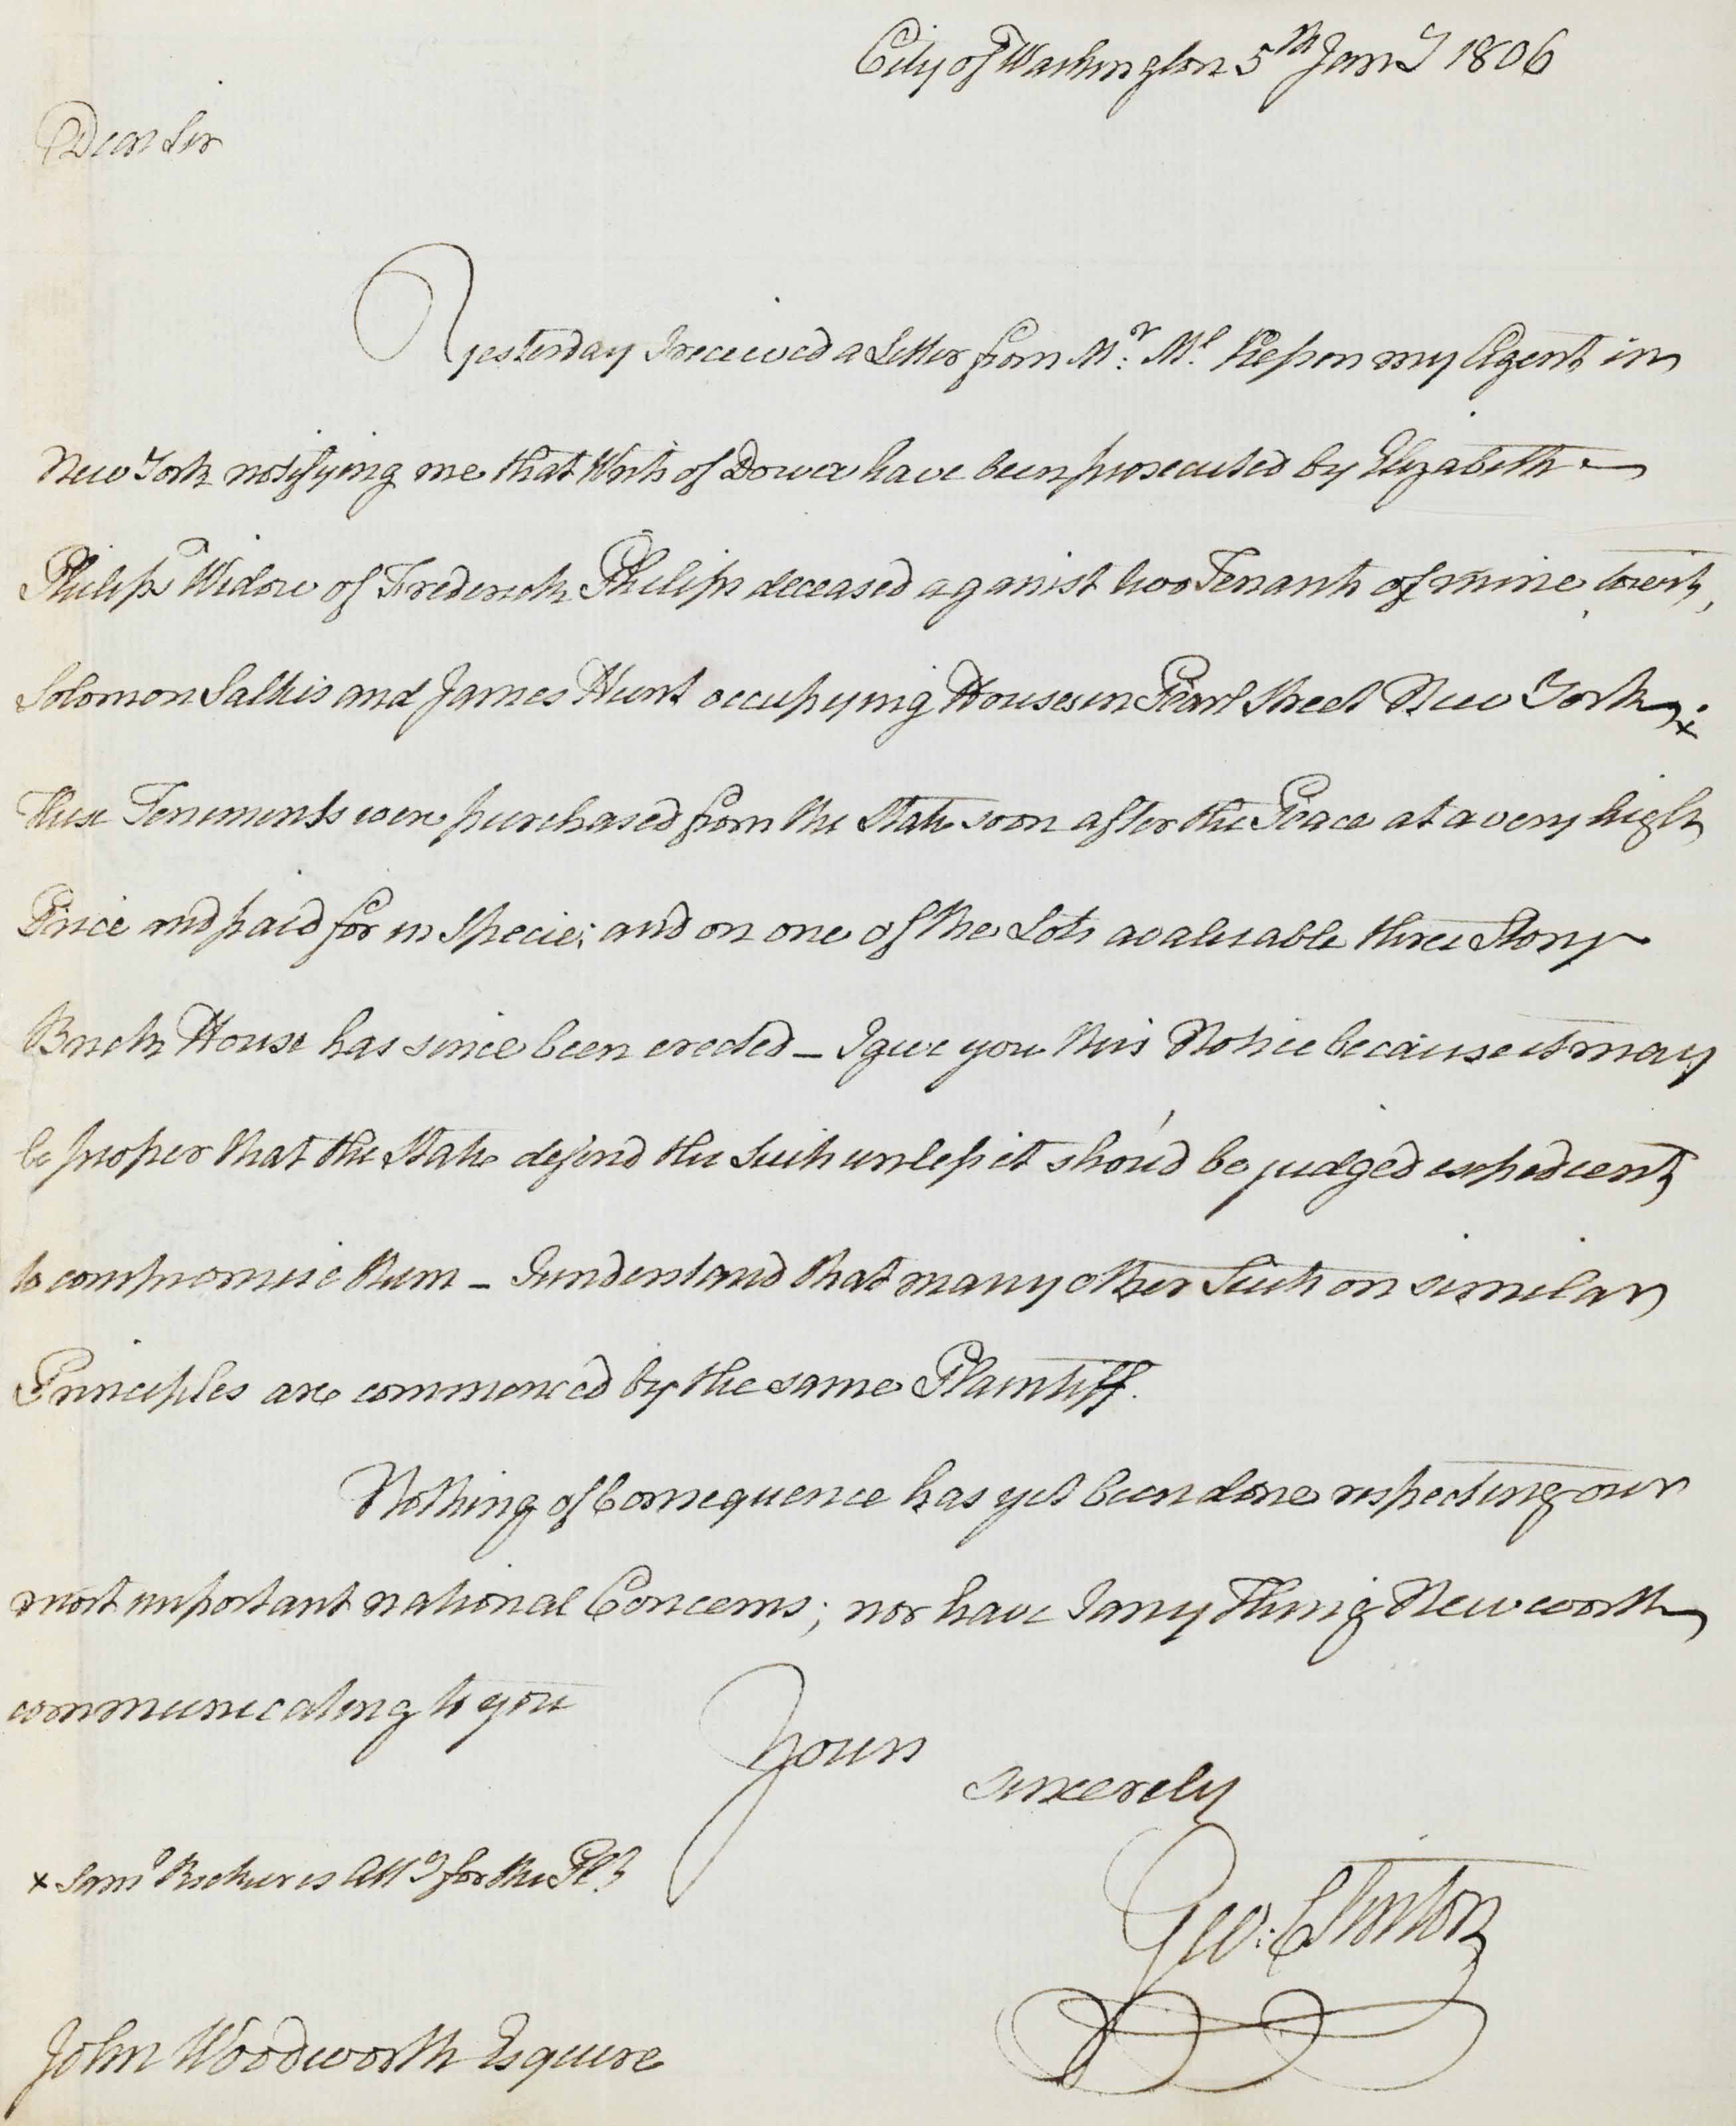 City of Washington 5th Jany 1806
Dear Sir
Yesterday I received a Letter from Mr. Mc. Kesson my Agent in
New York notifying me that Writs of Dower have been prosecuted by Elizabeth
Philips Widow of Frederick Philips deceased against two Tenants of mine towit,
Solomon Saltus and James Hunt occupying Houses in Pearl Street New York x:
these Tenements were purchased from the State soon after the Peace at a very high
Price and paid for in Specie; and on one of the Lots a valuable three Story
Brick House has since been erected – I give you this Notice because it may
be proper that the State defend the Suits unless it shou'd be judged expedient
to compromise them – I understand that many other Suits on similar
Principles are commenced by the same Plaintiff.
Nothing of Consequence has yet been done respecting our
most important national Concerns; nor have I any Thing New worth
communicating to you
Yours
sincerely
x Saml is Atty for the Plt
Geo: Clinton
John Woodworth Esquire